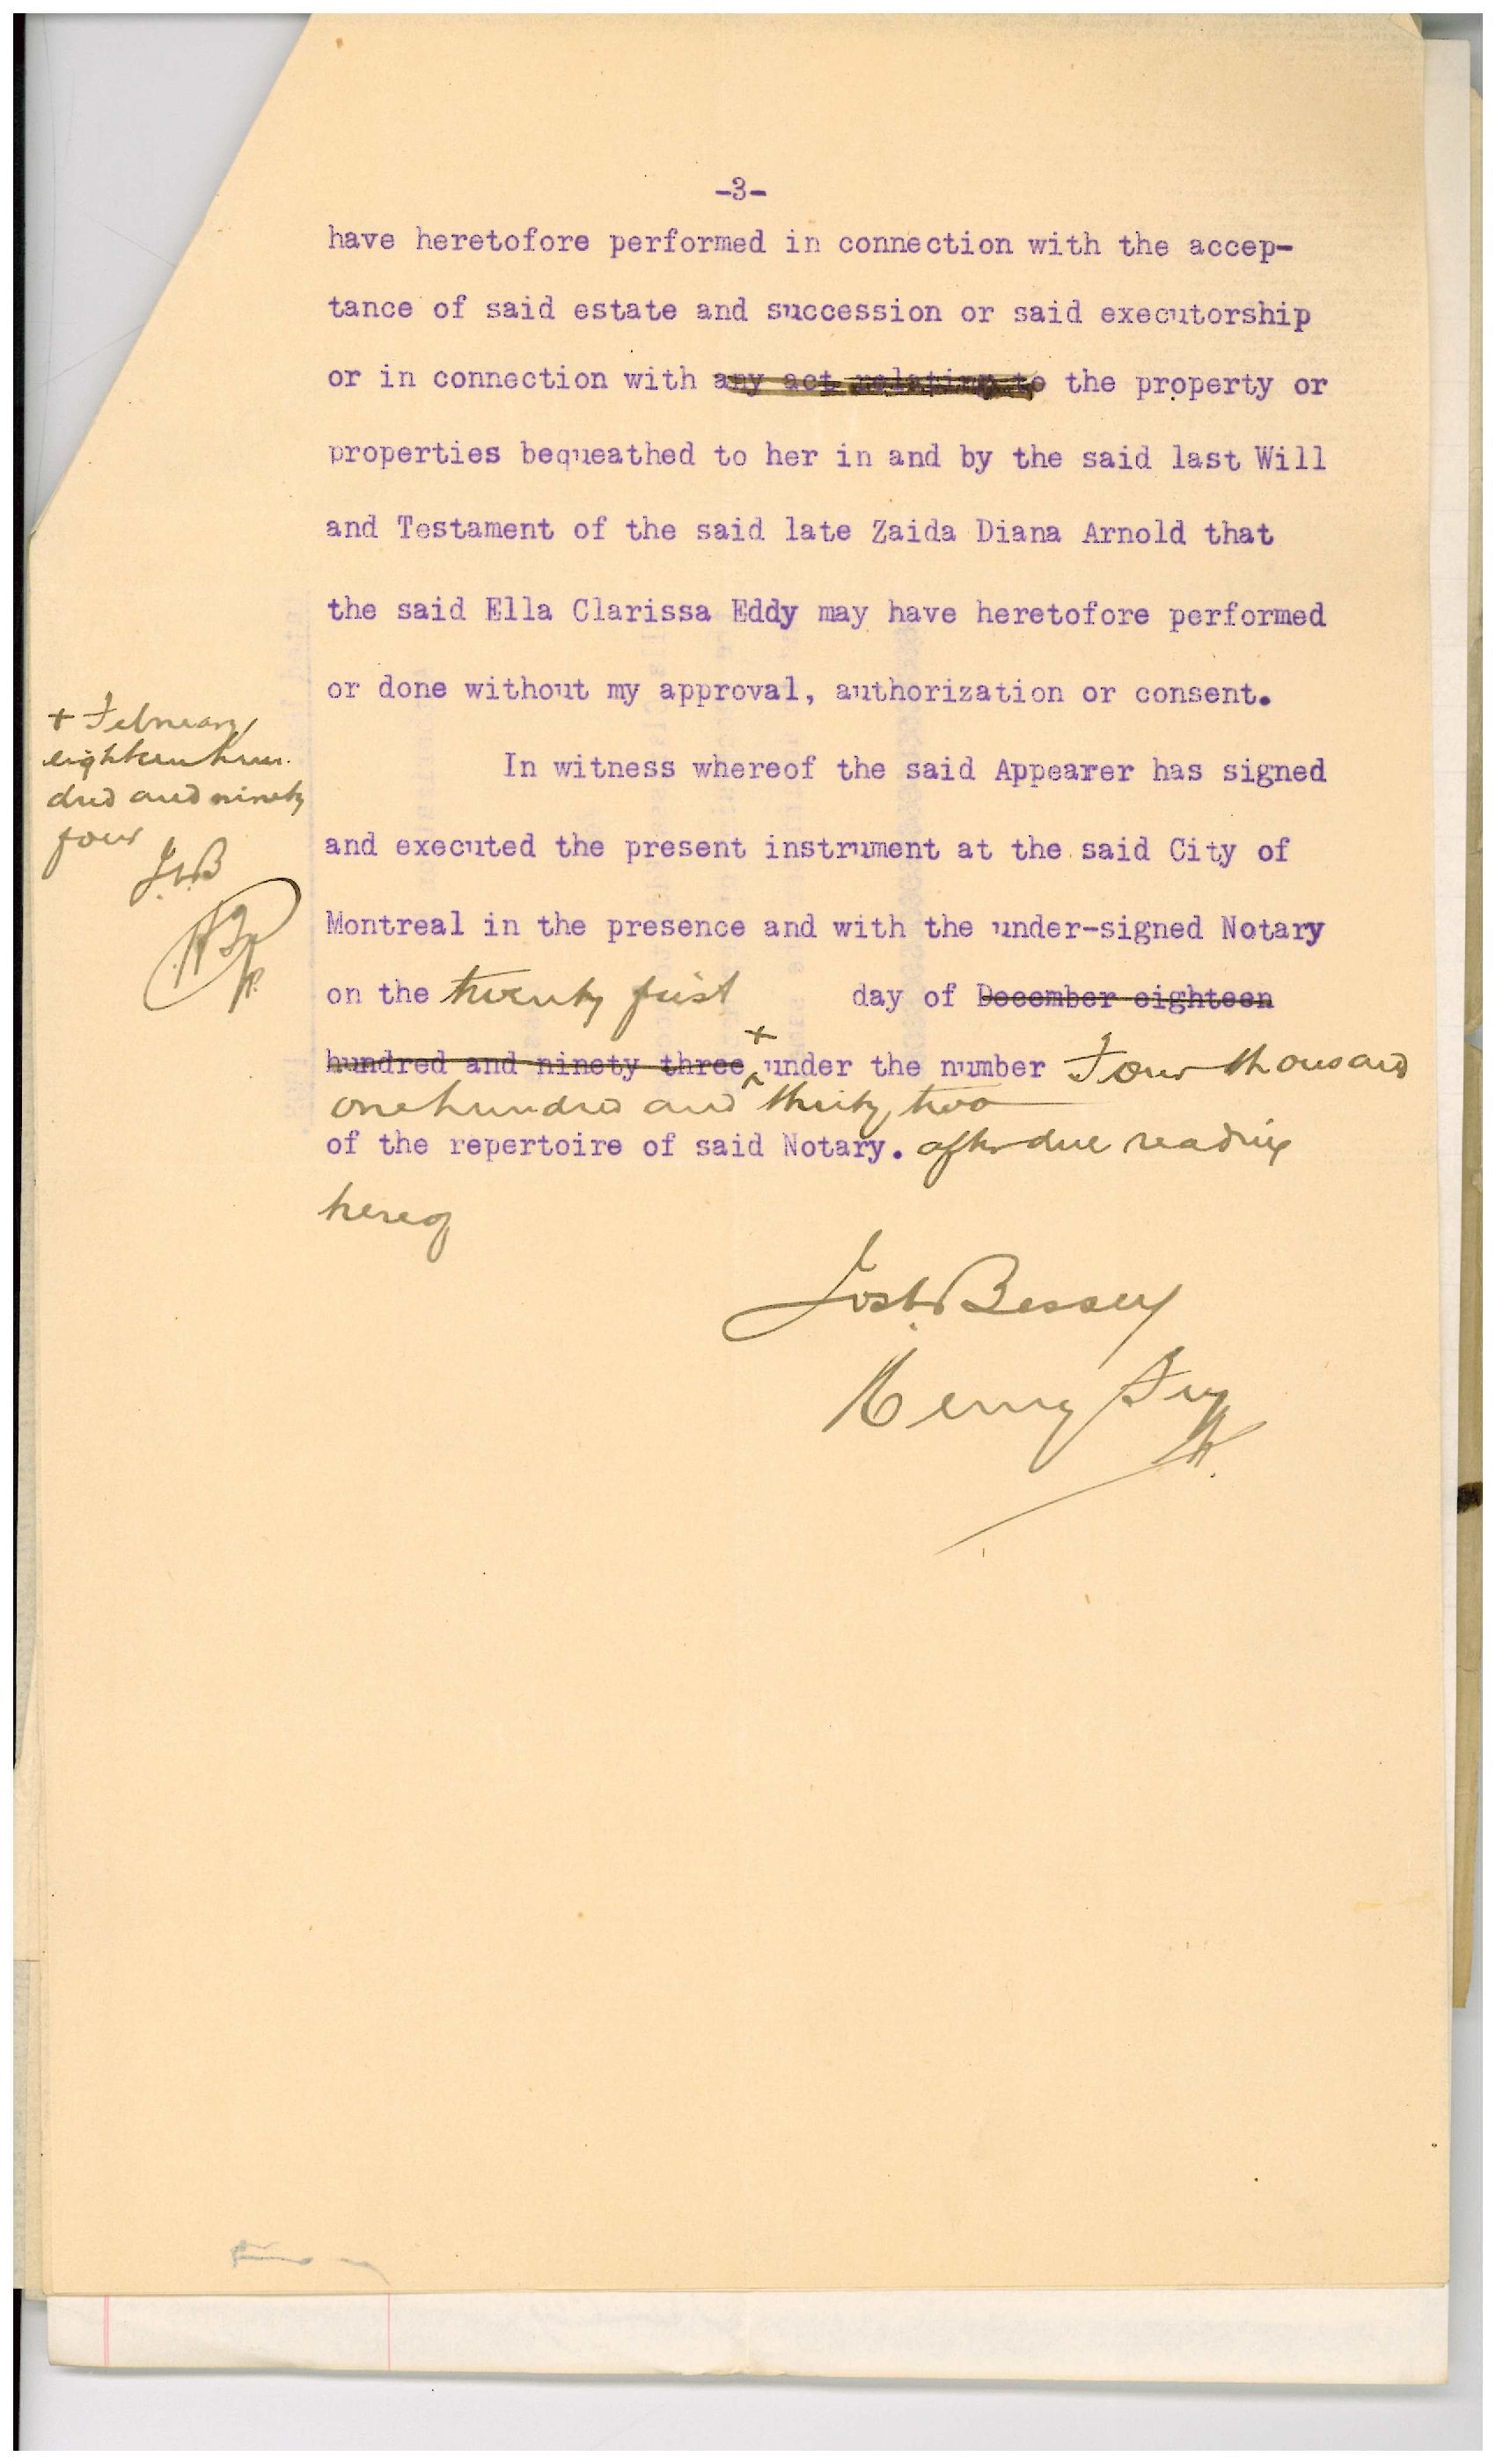 -3-
have heretofore performed in connection with the accep-
tance of said estate and succession or said executorship
or in connection with any act relating to the property or
properties bequeathed to her in and by the said last Will
and Testament of the said late Zaida Diana Arnold that
the said Ella Clarissa Eddy may have heretofore performed
or done without my approval, authorization or consent.
In witness whereof the said Appearer has signed
and executed the present instrument at the said City of
Montreal in the presence and with the under-signed Notary
on the twenty first day of December eighteen
hundred and ninety three + under the number Four thousand
one hundred and thirty two
of the repertoire of said Notary. after due reading
hereof
+ February
eighteen hun-
dred and ninety
four
Bessey
Henry Fry